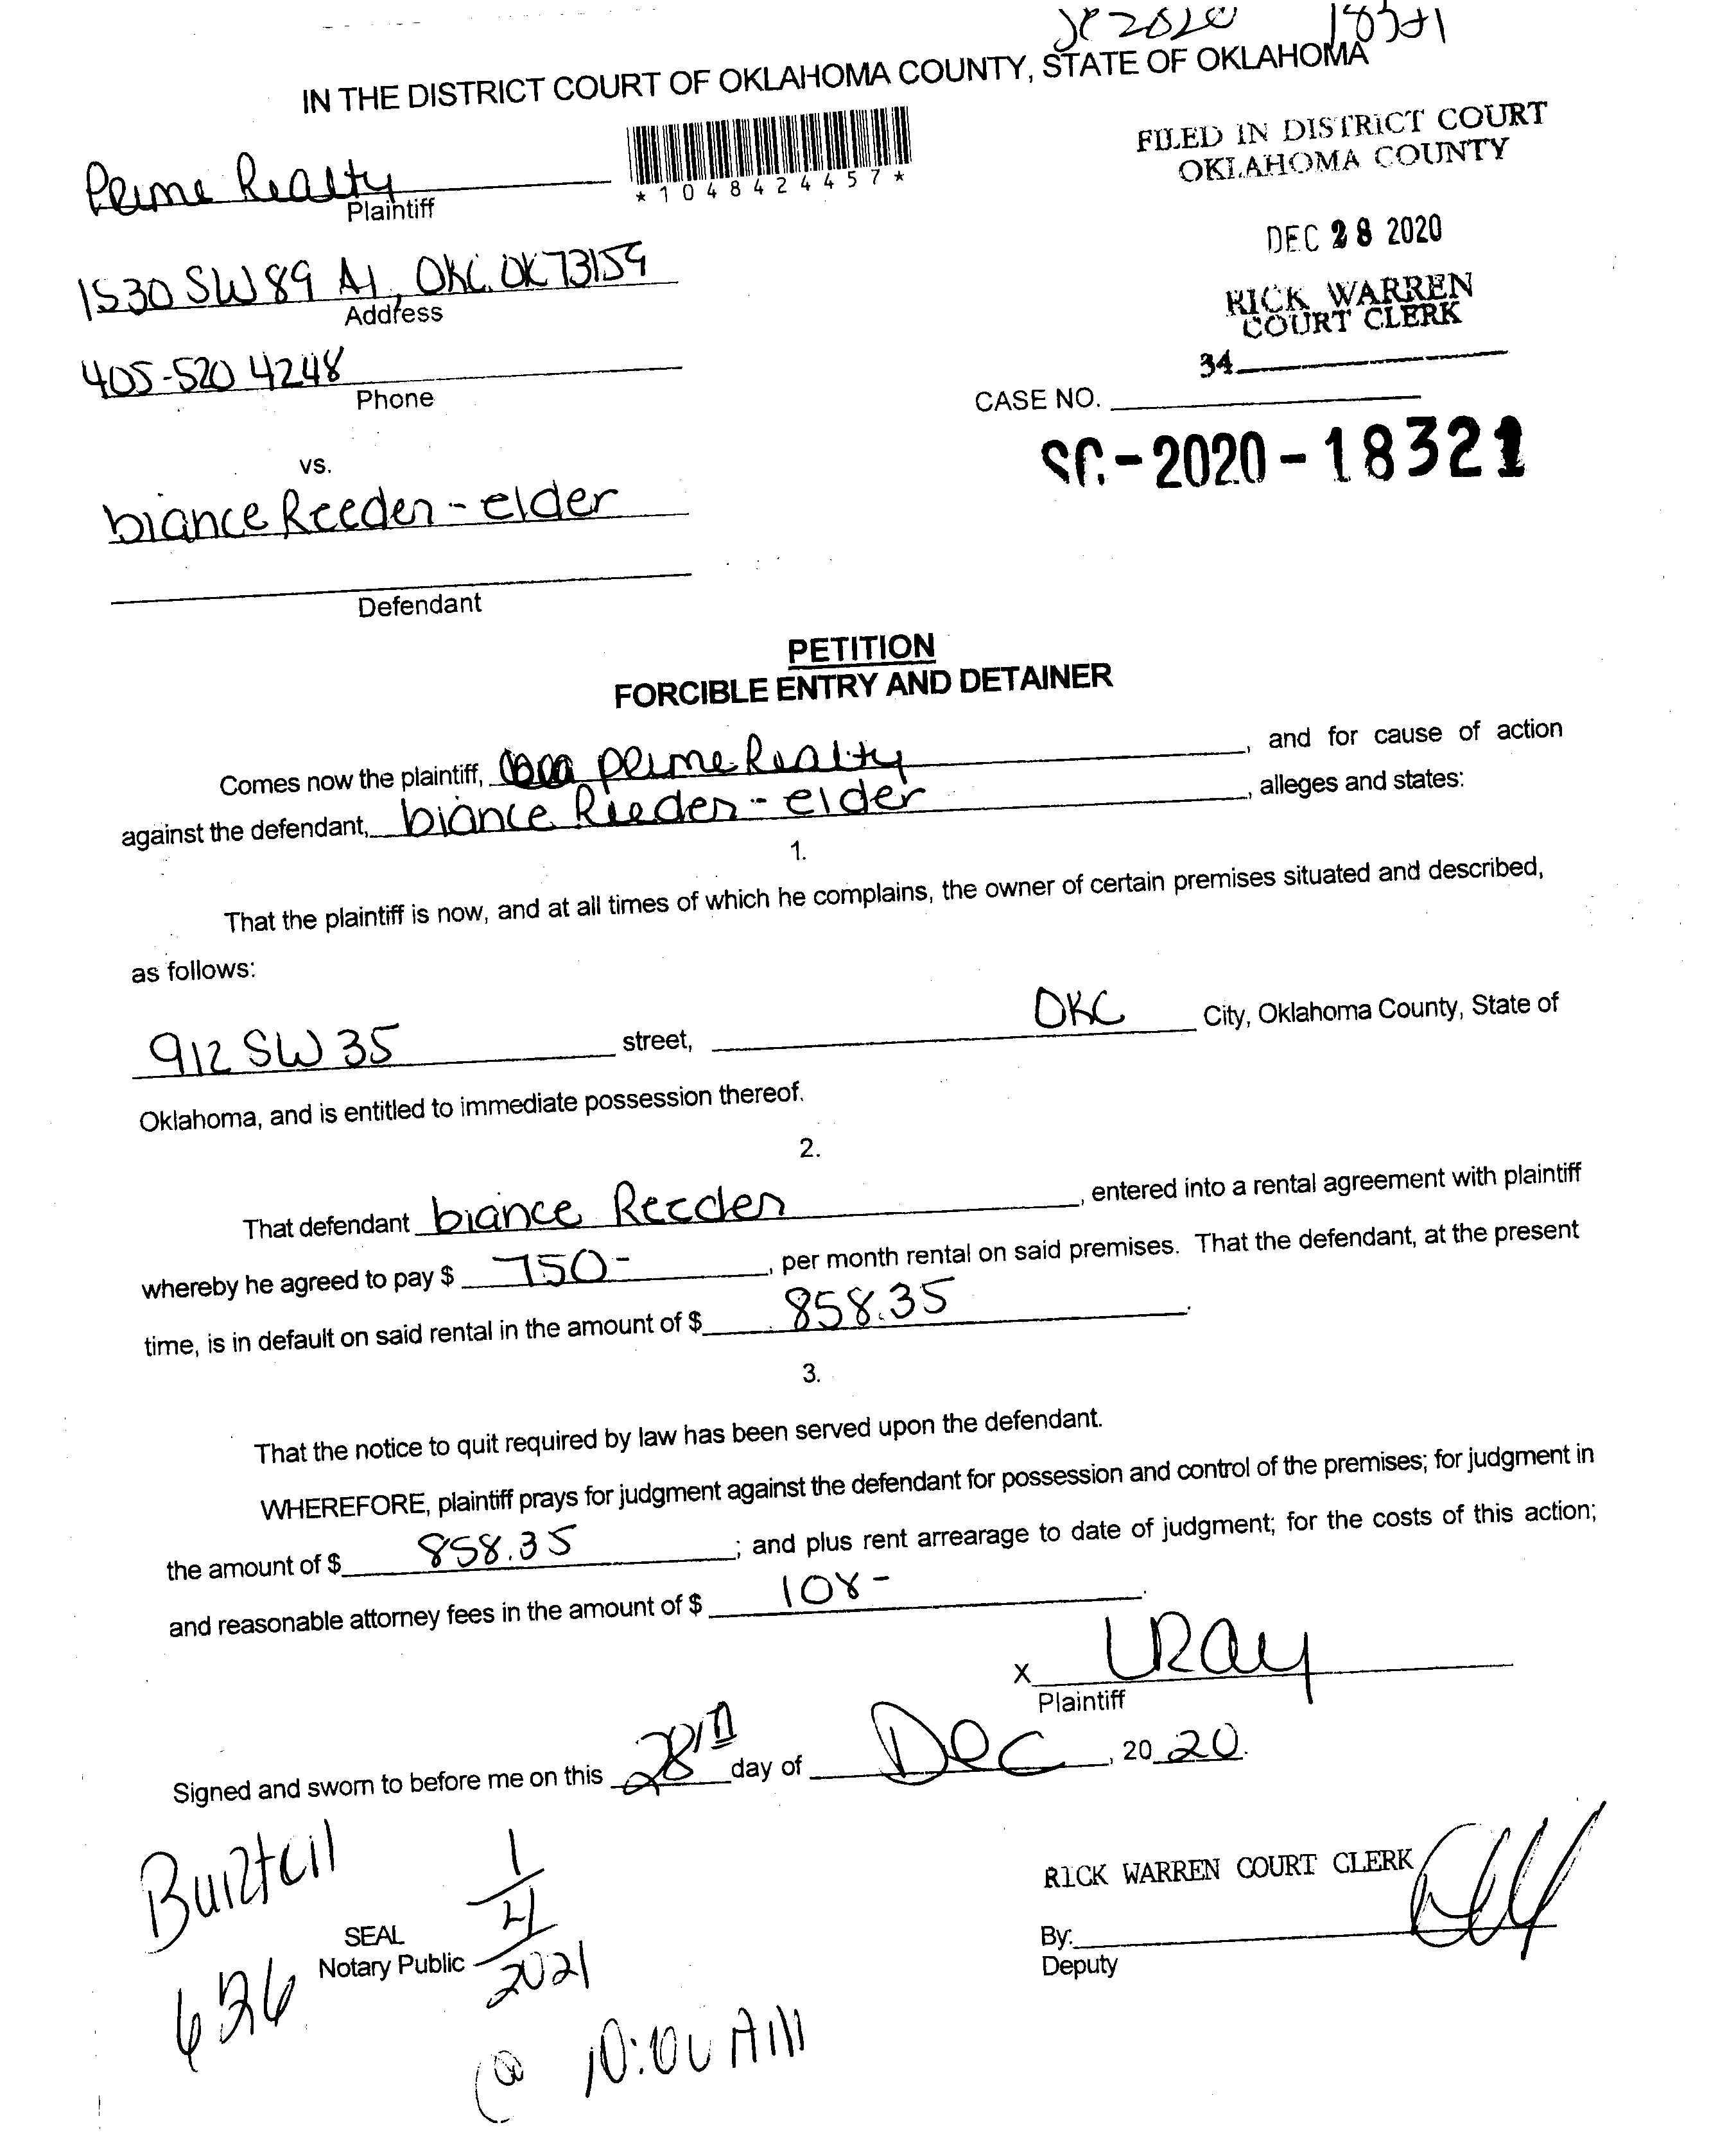 SC 2020 18321
IN THE DISTRICT COURT OF OKLAHOMA COUNTY, STATE OF OKLAHOMA
*1048424457*
FILED IN DISTRICT COURT
OKLAHOMA COUNTY
DEC 28 2020
RICK WARREN
COURT CLERK
34
Prime Realty
Plaintiff
1530 SW 89 A1, OKC. OK 73159
Address
405-520 4248
Phone
CASE NO.
SC-2020-18321
vs.
biance Reeder-elder
Defendant
PETITION
FORCIBLE ENTRY AND DETAINER
Comes now the plaintiff, Prime Realty, and for cause of action
against the defendant, biance Reeder-elder, alleges and states:
1.
That the plaintiff is now, and at all times of which he complains, the owner of certain premises situated and described,
as follows:
912 SW 35 street, OKC City, Oklahoma County, State of
Oklahoma, and is entitled to immediate possession thereof.
2.
That defendant biance Reeder, entered into a rental agreement with plaintiff
whereby he agreed to pay $ 750-, per month rental on said premises. That the defendant, at the present
time, is in default on said rental in the amount of $ 858.35.
3.
That the notice to quit required by law has been served upon the defendant.
WHEREFORE, plaintiff prays for judgment against the defendant for possession and control of the premises; for judgment in
the amount of $ 858.35; and plus rent arrearage to date of judgment; for the costs of this action;
and reasonable attorney fees in the amount of $ 108-.
X LRay
Plaintiff
Signed and sworn to before me on this 28th day of Dec, 2020.
RICK WARREN COURT CLERK
SEAL
Notary Public
1/4/2021
626
By:
Deputy
@ 10:00 AM